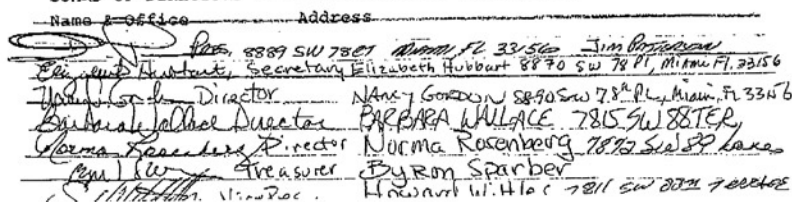 Name & Office Address
Pres. 8889 SW 78 Miami FL 33156 Jim
Elizabeth Hubbart, Secretary Elizabeth Hubbart 8870 SW 78 Pl, Miami Fl. 33156
Director NANCY GORDON 8890 SW 78th PL, Miami, FL 33156
Barbara Wallace Director BARBARA WALLACE 7815 SW 88TER,
Norma Rosenberg, Director Norma Rosenberg 7892 SW 89
Treasurer Byron Sparber
Howard 7811 SW 88TH TERRACE